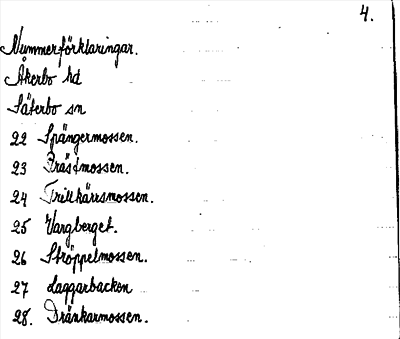 4.
Nummerförklaringar.
Åkerbo hd
Säterbo sn
22 Spångermossen.
23 Prästmossen.
24 Trillkärrsmossen.
25 Vargberget.
26 Ströppelmossen.
27 Laggarbacken
28. Dränkarmossen.